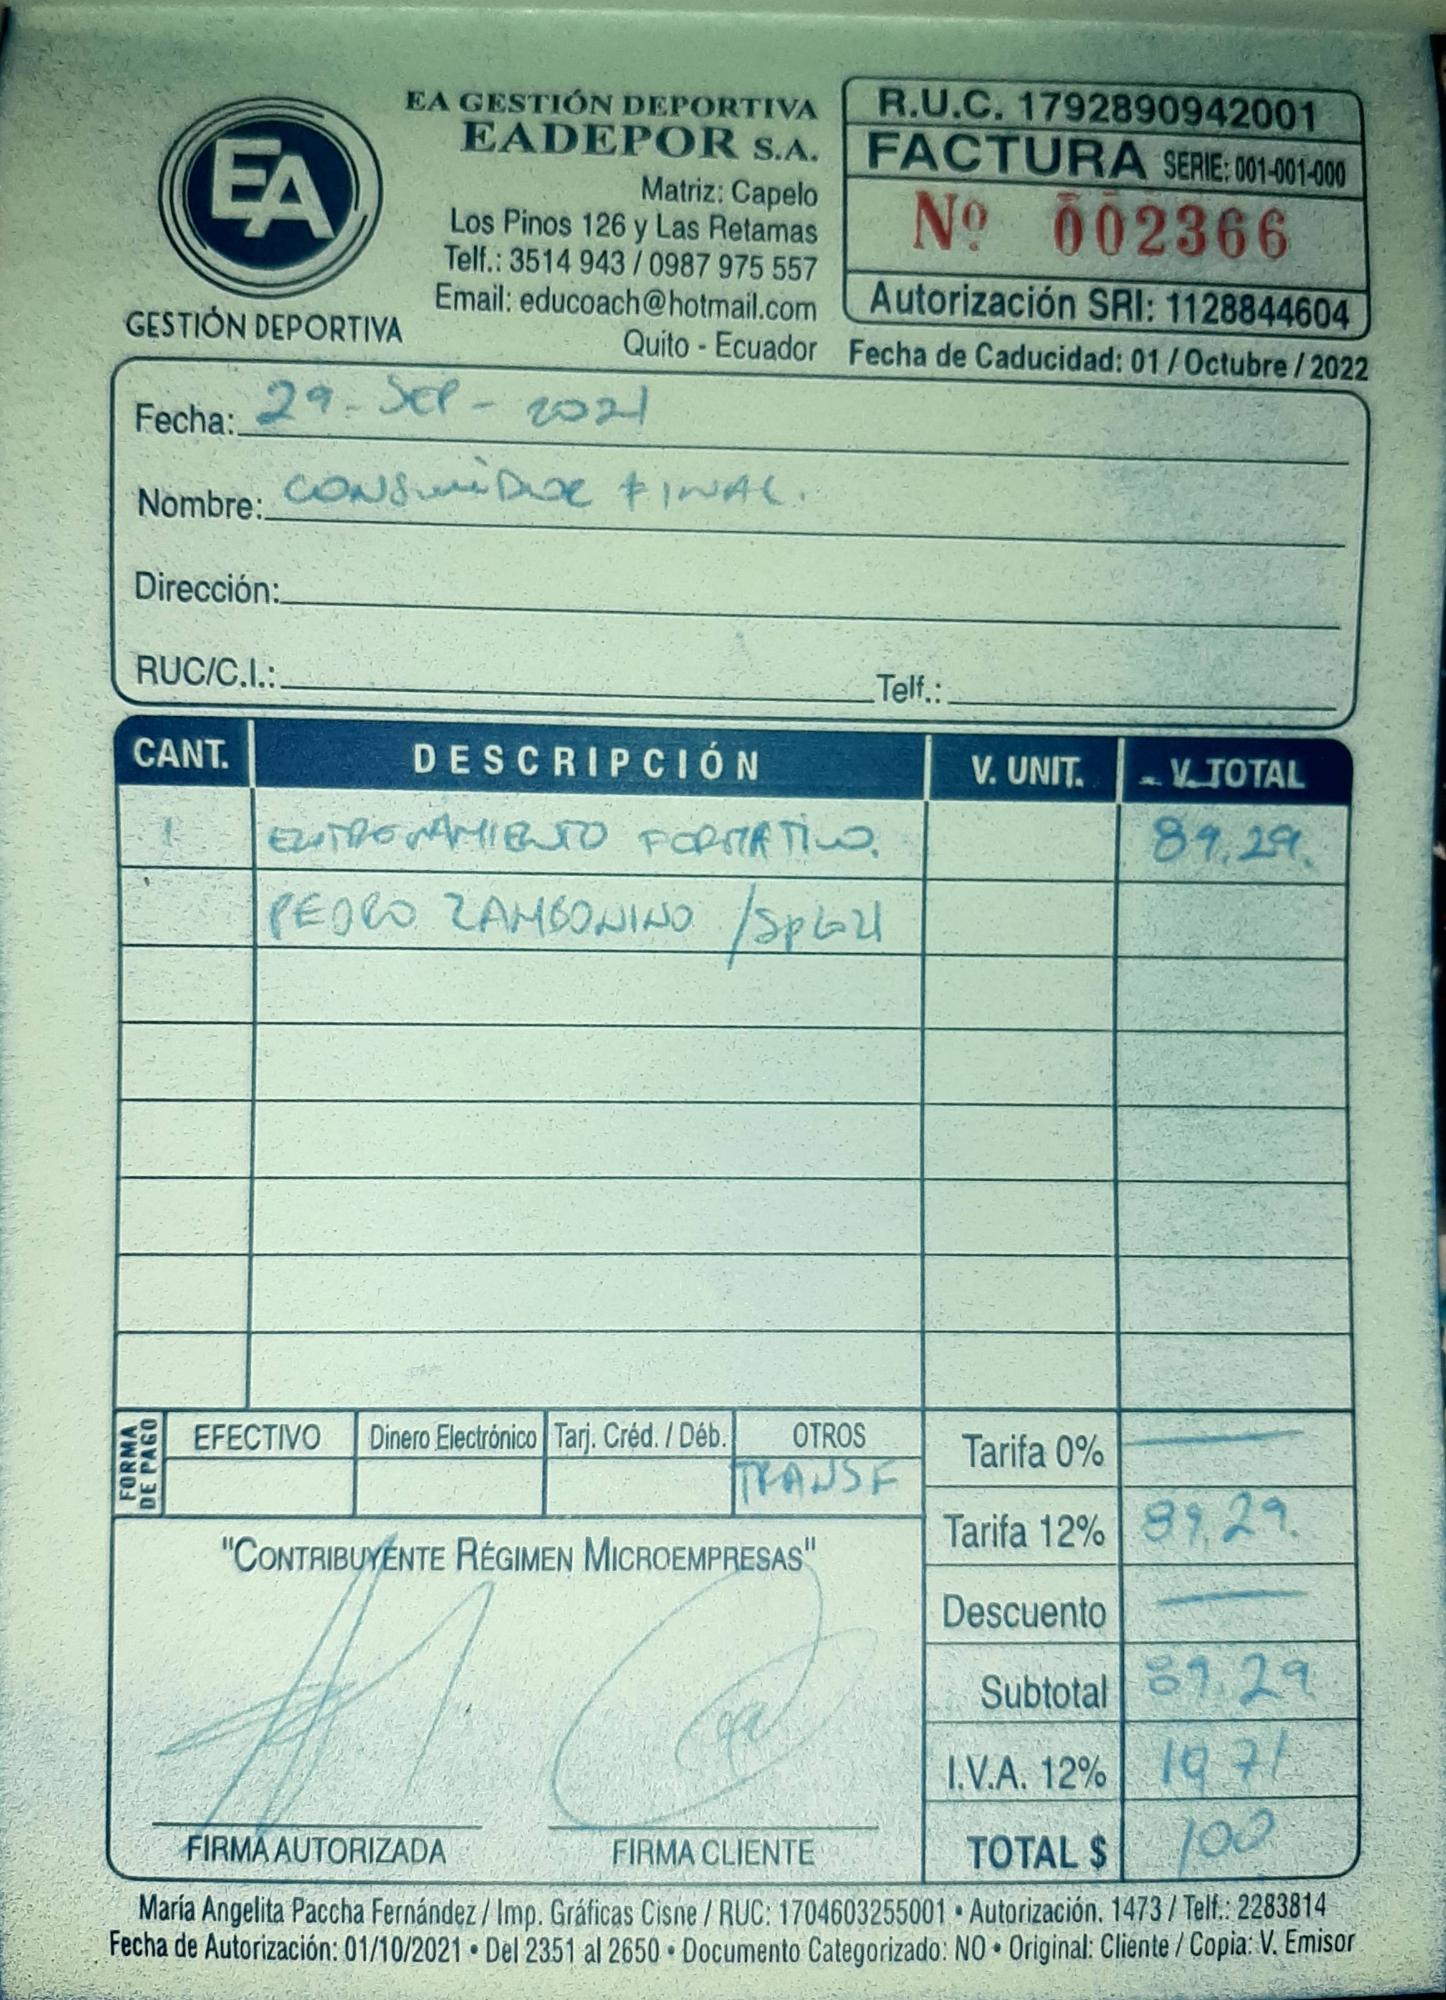 EA GESTIÓN DEPORTIVA
EADEPOR S.A.
Matriz: Capelo
Los Pinos 126 y Las Retamas
Telf.: 3514 943 / 0987 975 557
Email: educoach@hotmail.com
Quito - Ecuador
EA
GESTIÓN DEPORTIVA
R.U.C. 1792890942001
FACTURA SERIE: 001-001-000
Nº 002366
Autorización SRI: 1128844604
Fecha de Caducidad: 01 / Octubre / 2022
Fecha: 29-SEP-2021
Nombre: CONSUMIDOR FINAL.
Dirección:
RUC/C.I.: Telf.:
CANT. DESCRIPCIÓN V. UNIT. V. TOTAL
1 ENTRENAMIENTO FORMATIVO. 89.29.
PEDRO ZAMBONINO /
FORMA DE PAGO
EFECTIVO Dinero Electrónico Tarj. Créd. / Déb. OTROS
TRANSF
Tarifa 0%
Tarifa 12% 89.29.
Descuento
Subtotal 89.29
I.V.A. 12% 10 71
TOTAL $ 100
"CONTRIBUYENTE RÉGIMEN MICROEMPRESAS"
FIRMA AUTORIZADA FIRMA CLIENTE
María Angelita Paccha Fernández / Imp. Gráficas Cisne / RUC: 1704603255001 • Autorización. 1473 / Telf.: 2283814
Fecha de Autorización: 01/10/2021 • Del 2351 al 2650 • Documento Categorizado: NO • Original: Cliente / Copia: V. Emisor